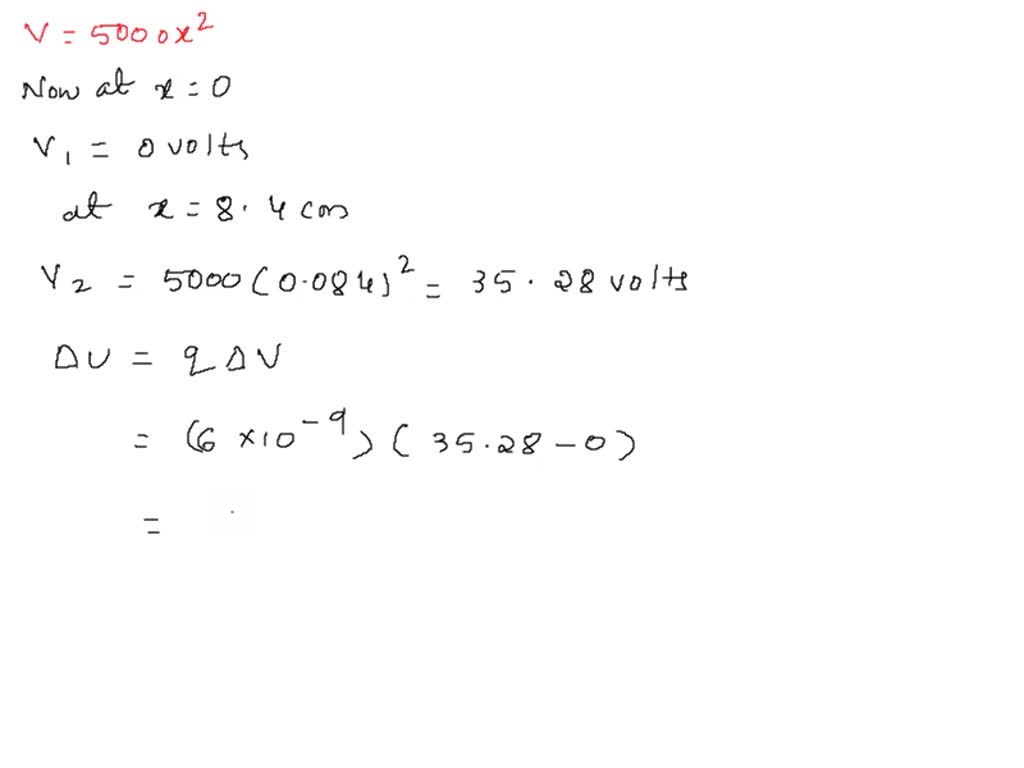 V = 5000x²
Now at x = 0
V₁ = 0 volts
at x = 8.4 cm
V₂ = 5000(0.084)² = 35.28 volts
ΔU = qΔV
= (6 × 10⁻⁹)(35.28 − 0)
=